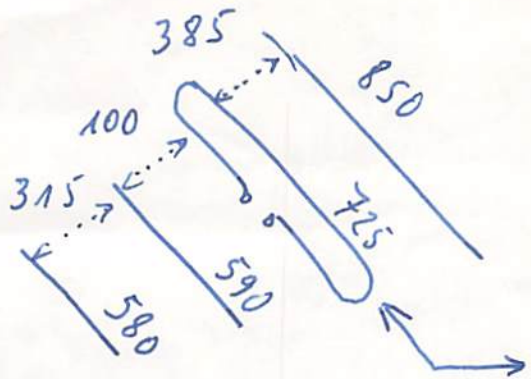 385
850
100
315
725
590
580